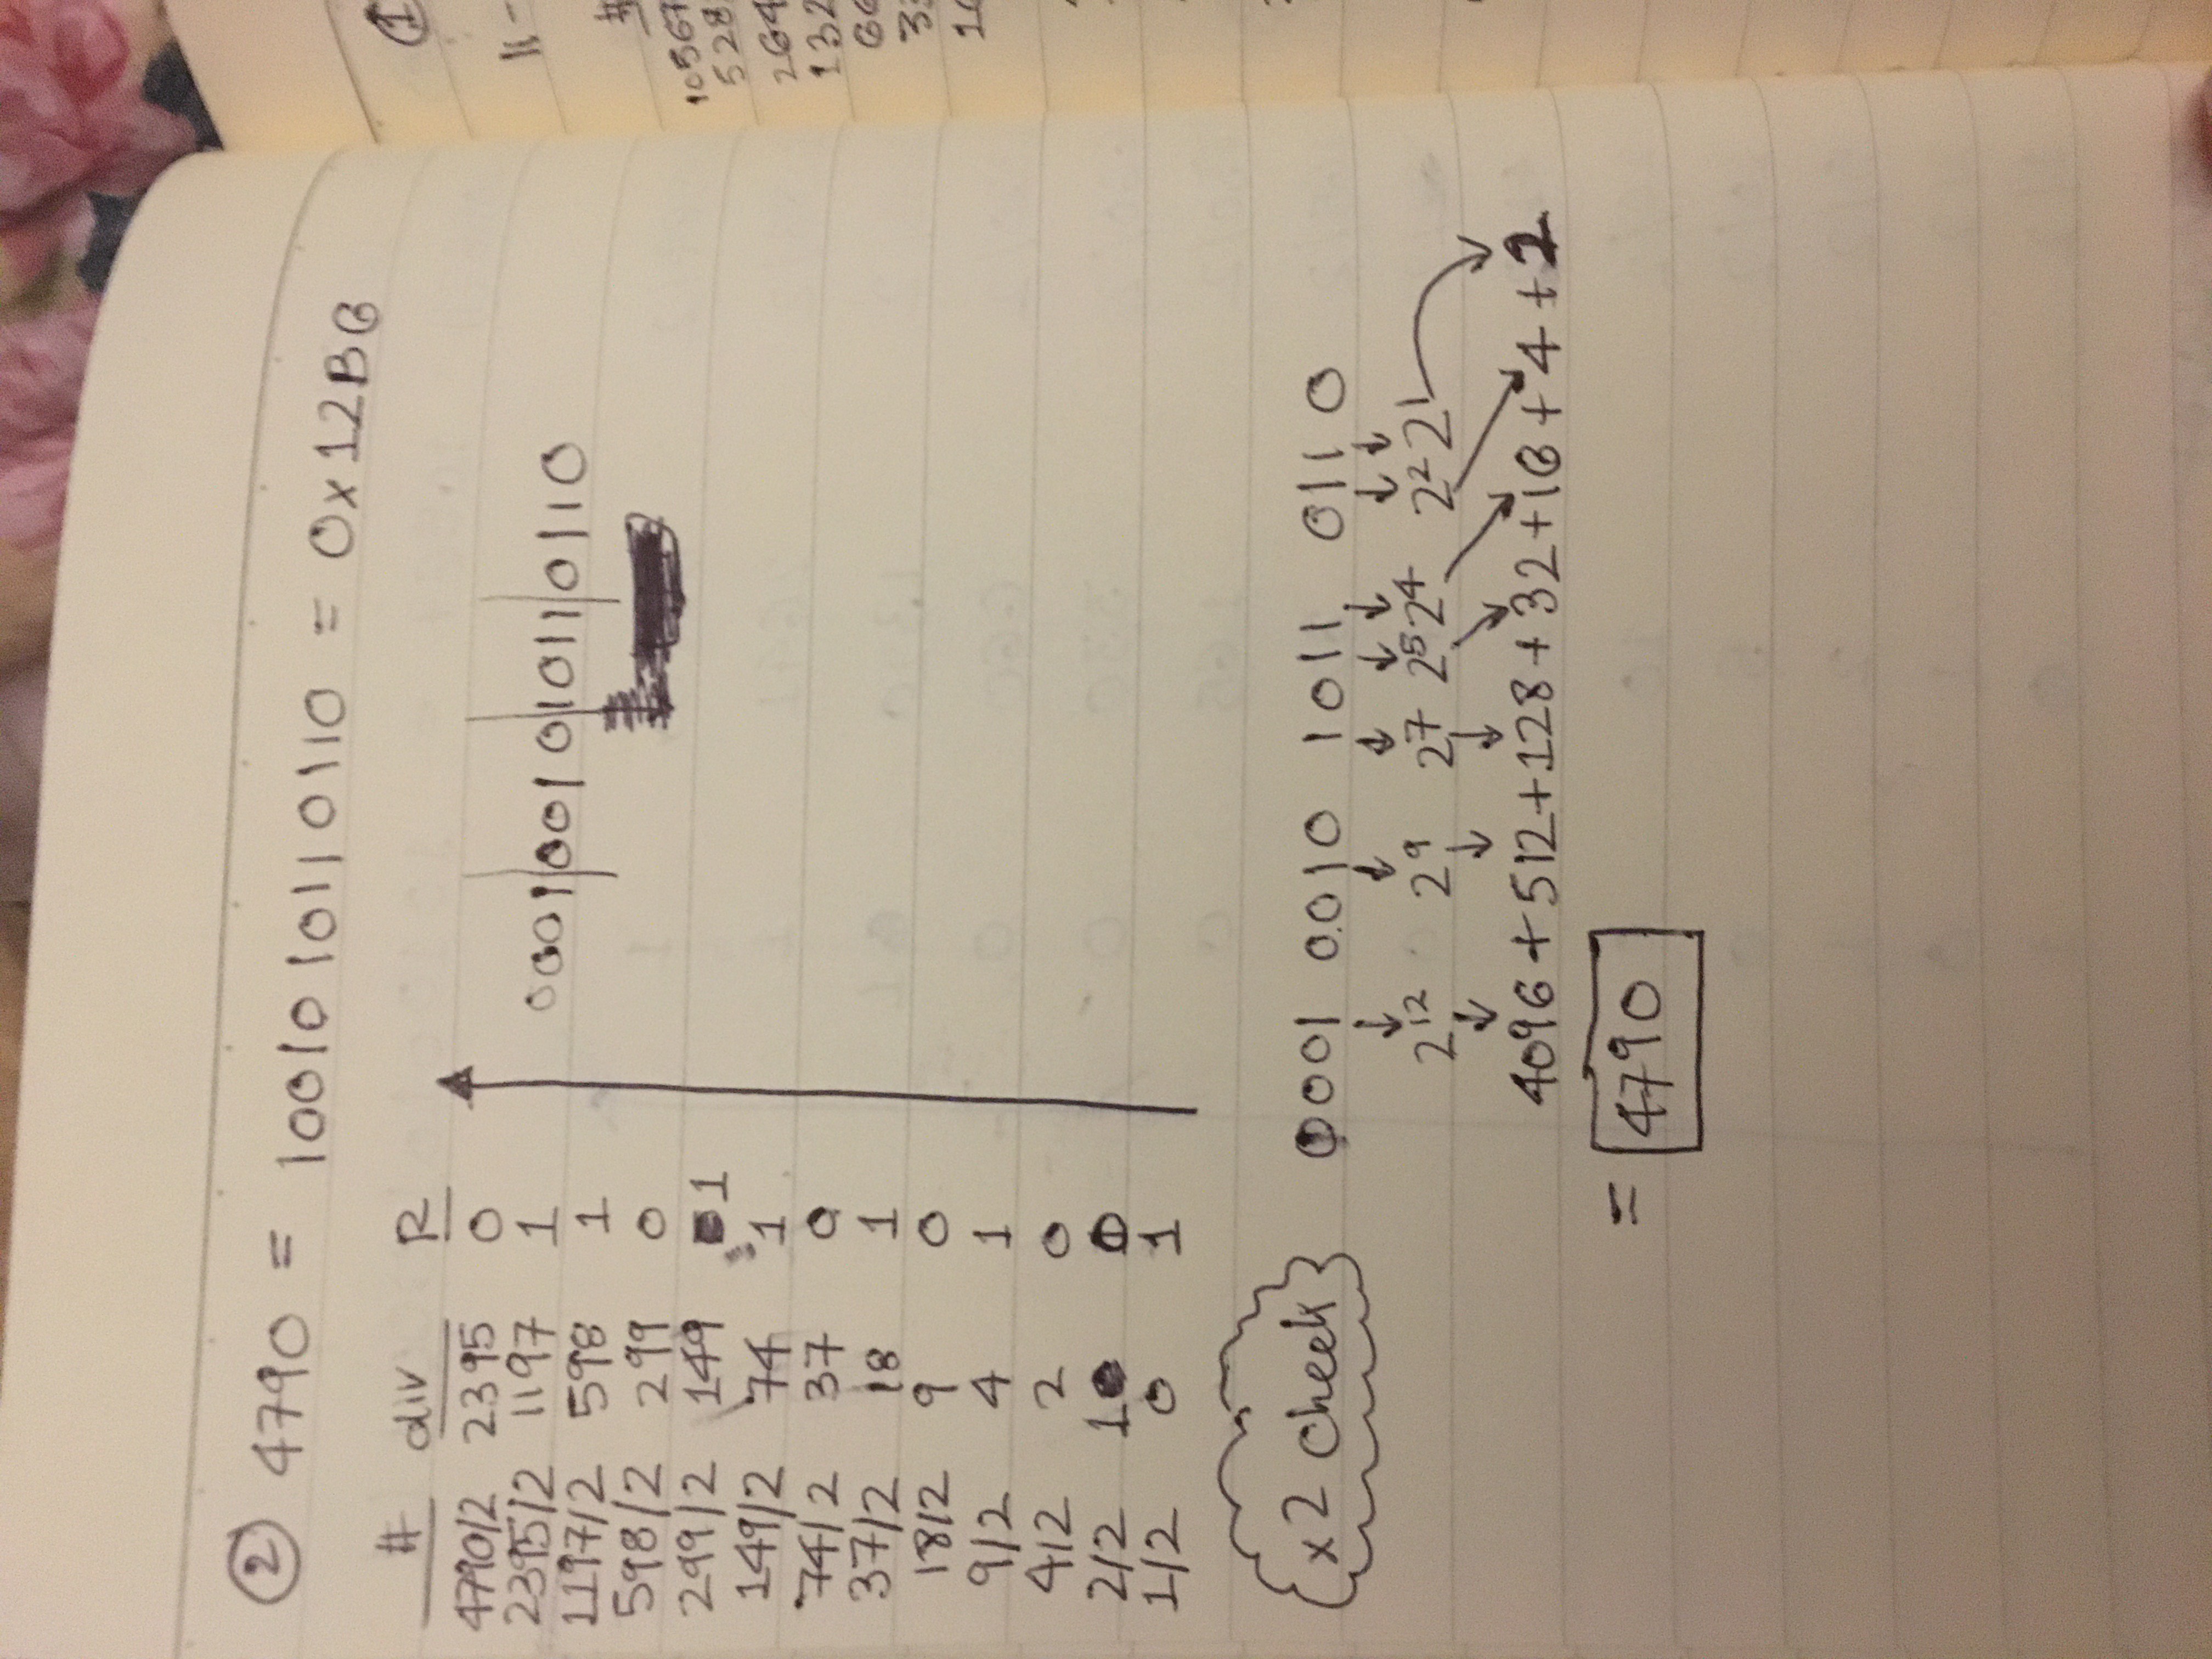 ② 4790 = 10010 10110110 = 0x12B6
# div R
4790/2 2395 0
2395/2 1197 1
1197/2 598 1
598/2 299 0
299/2 149 1
149/2 74 1
74/2 37 0
37/2 18 1
18/2 9 0
9/2 4 1
4/2 2 0
2/2 1 0
1/2 0 1
0001|0010|1011|0110
x2 check
0001 0010 1011 0110
2¹² 2⁹ 2⁷ 2⁵ 2⁴ 2² 2¹
4096 + 512 + 128 + 32 + 16 + 4 + 2
= 4790
①
#
10567
528
264
132